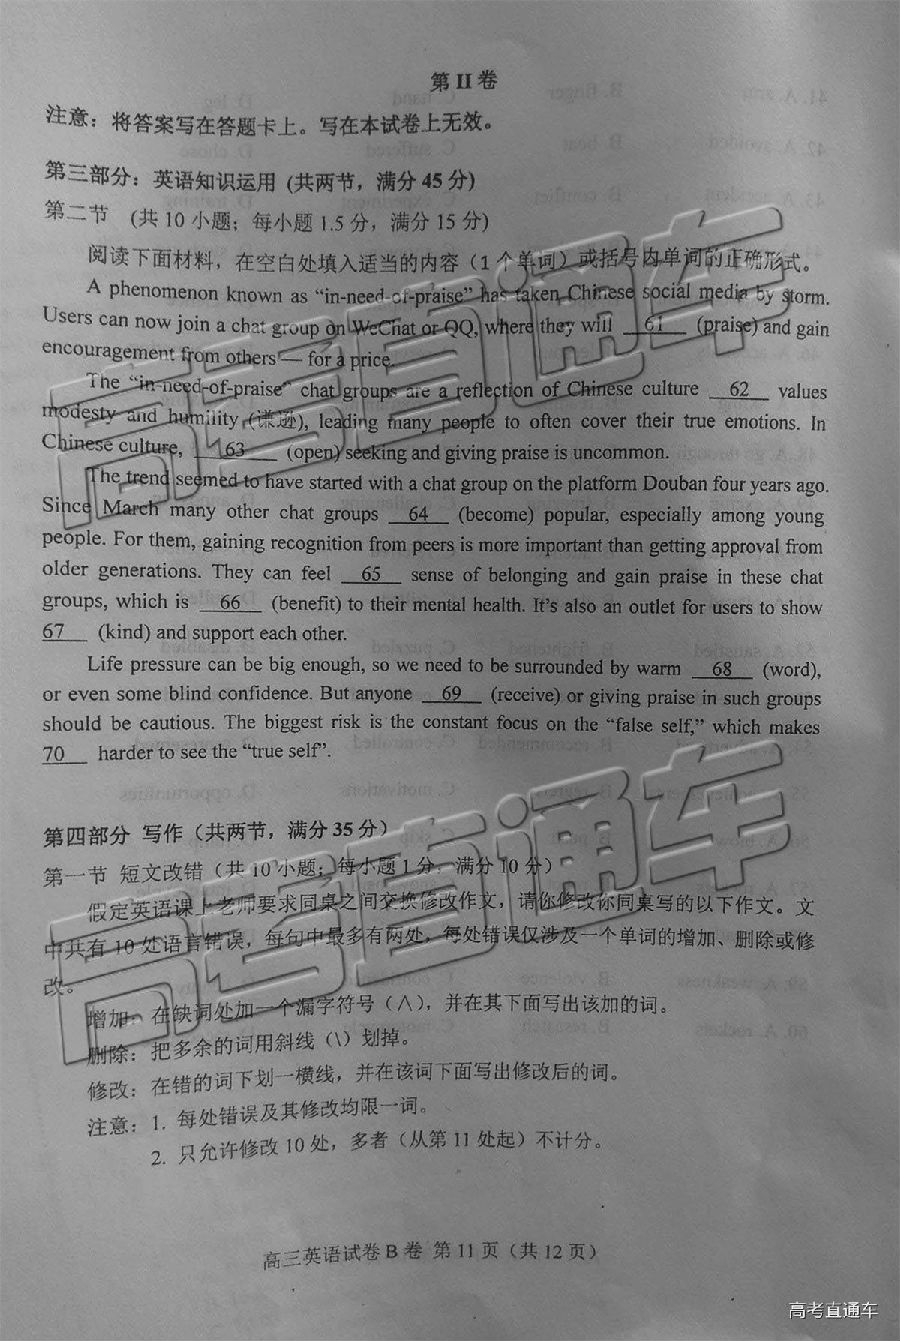 第 II 卷
注意：将答案写在答题卡上。写在本试卷上无效。
第三部分：英语知识运用 (共两节，满分 45 分)
第二节 (共 10 小题；每小题 1.5 分，满分 15 分)
阅读下面材料，在空白处填入适当的内容（1 个单词）或括号内单词的正确形式。
A phenomenon known as “in-need-of-praise” has taken Chinese social media by storm.
Users can now join a chat group on WeChat or QQ, where they will 61 (praise) and gain
encouragement from others — for a price.
The “in-need-of-praise” chat groups are a reflection of Chinese culture 62 values
modesty and humility (谦逊), leading many people to often cover their true emotions. In
Chinese culture, 63 (open) seeking and giving praise is uncommon.
The trend seemed to have started with a chat group on the platform Douban four years ago.
Since March many other chat groups 64 (become) popular, especially among young
people. For them, gaining recognition from peers is more important than getting approval from
older generations. They can feel 65 sense of belonging and gain praise in these chat
groups, which is 66 (benefit) to their mental health. It’s also an outlet for users to show
67 (kind) and support each other.
Life pressure can be big enough, so we need to be surrounded by warm 68 (word),
or even some blind confidence. But anyone 69 (receive) or giving praise in such groups
should be cautious. The biggest risk is the constant focus on the “false self,” which makes
70 harder to see the “true self”.
第四部分 写作（共两节，满分 35 分）
第一节 短文改错（共 10 小题；每小题 1 分，满分 10 分）
假定英语课上老师要求同桌之间交换修改作文，请你修改你同桌写的以下作文。文
中共有 10 处语言错误，每句中最多有两处，每处错误仅涉及一个单词的增加、删除或修
改。
增加：在缺词处加一个漏字符号（∧），并在其下面写出该加的词。
删除：把多余的词用斜线（\）划掉。
修改：在错的词下划一横线，并在该词下面写出修改后的词。
注意：1. 每处错误及其修改均限一词。
2. 只允许修改 10 处，多者（从第 11 处起）不计分。
高三英语试卷 B 卷 第 11 页（共 12 页）
高考直通车